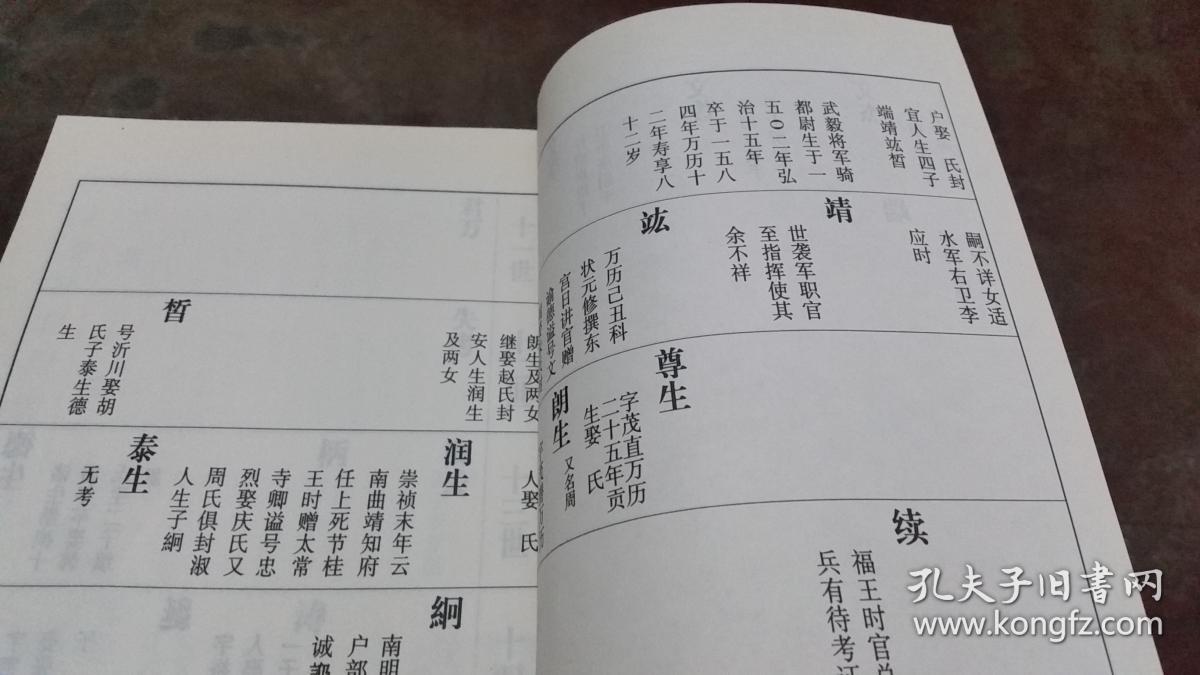 户娶 氏封
宜人生四子
端靖竑晳
武毅将军骑
都尉生于一
五〇二年弘
治十五年
卒于一五八
四年万历十
二年寿享八
十二岁
嗣不详女适
水军右卫李
应时
靖
世袭军职官
至指挥使其
余不祥
竑
万历己丑科
状元修撰东
宫日讲官赠
谕德谥号文
尊生
字茂直万历
二十五年贡
生娶 氏
朗生 又名周
续
福王时官总
兵有待考证
朗生及两女
继娶赵氏封
安人生润生
及两女
晳
号沂川娶胡
氏子泰生德
生
人娶 氏
润生
崇祯末年云
南曲靖知府
任上死节桂
王时赠太常
寺卿谥号忠
烈娶庆氏又
周氏俱封淑
人生子絅
泰生
无考
絅
南明
户部
诚
孔夫子旧书网
www.kongfz.com